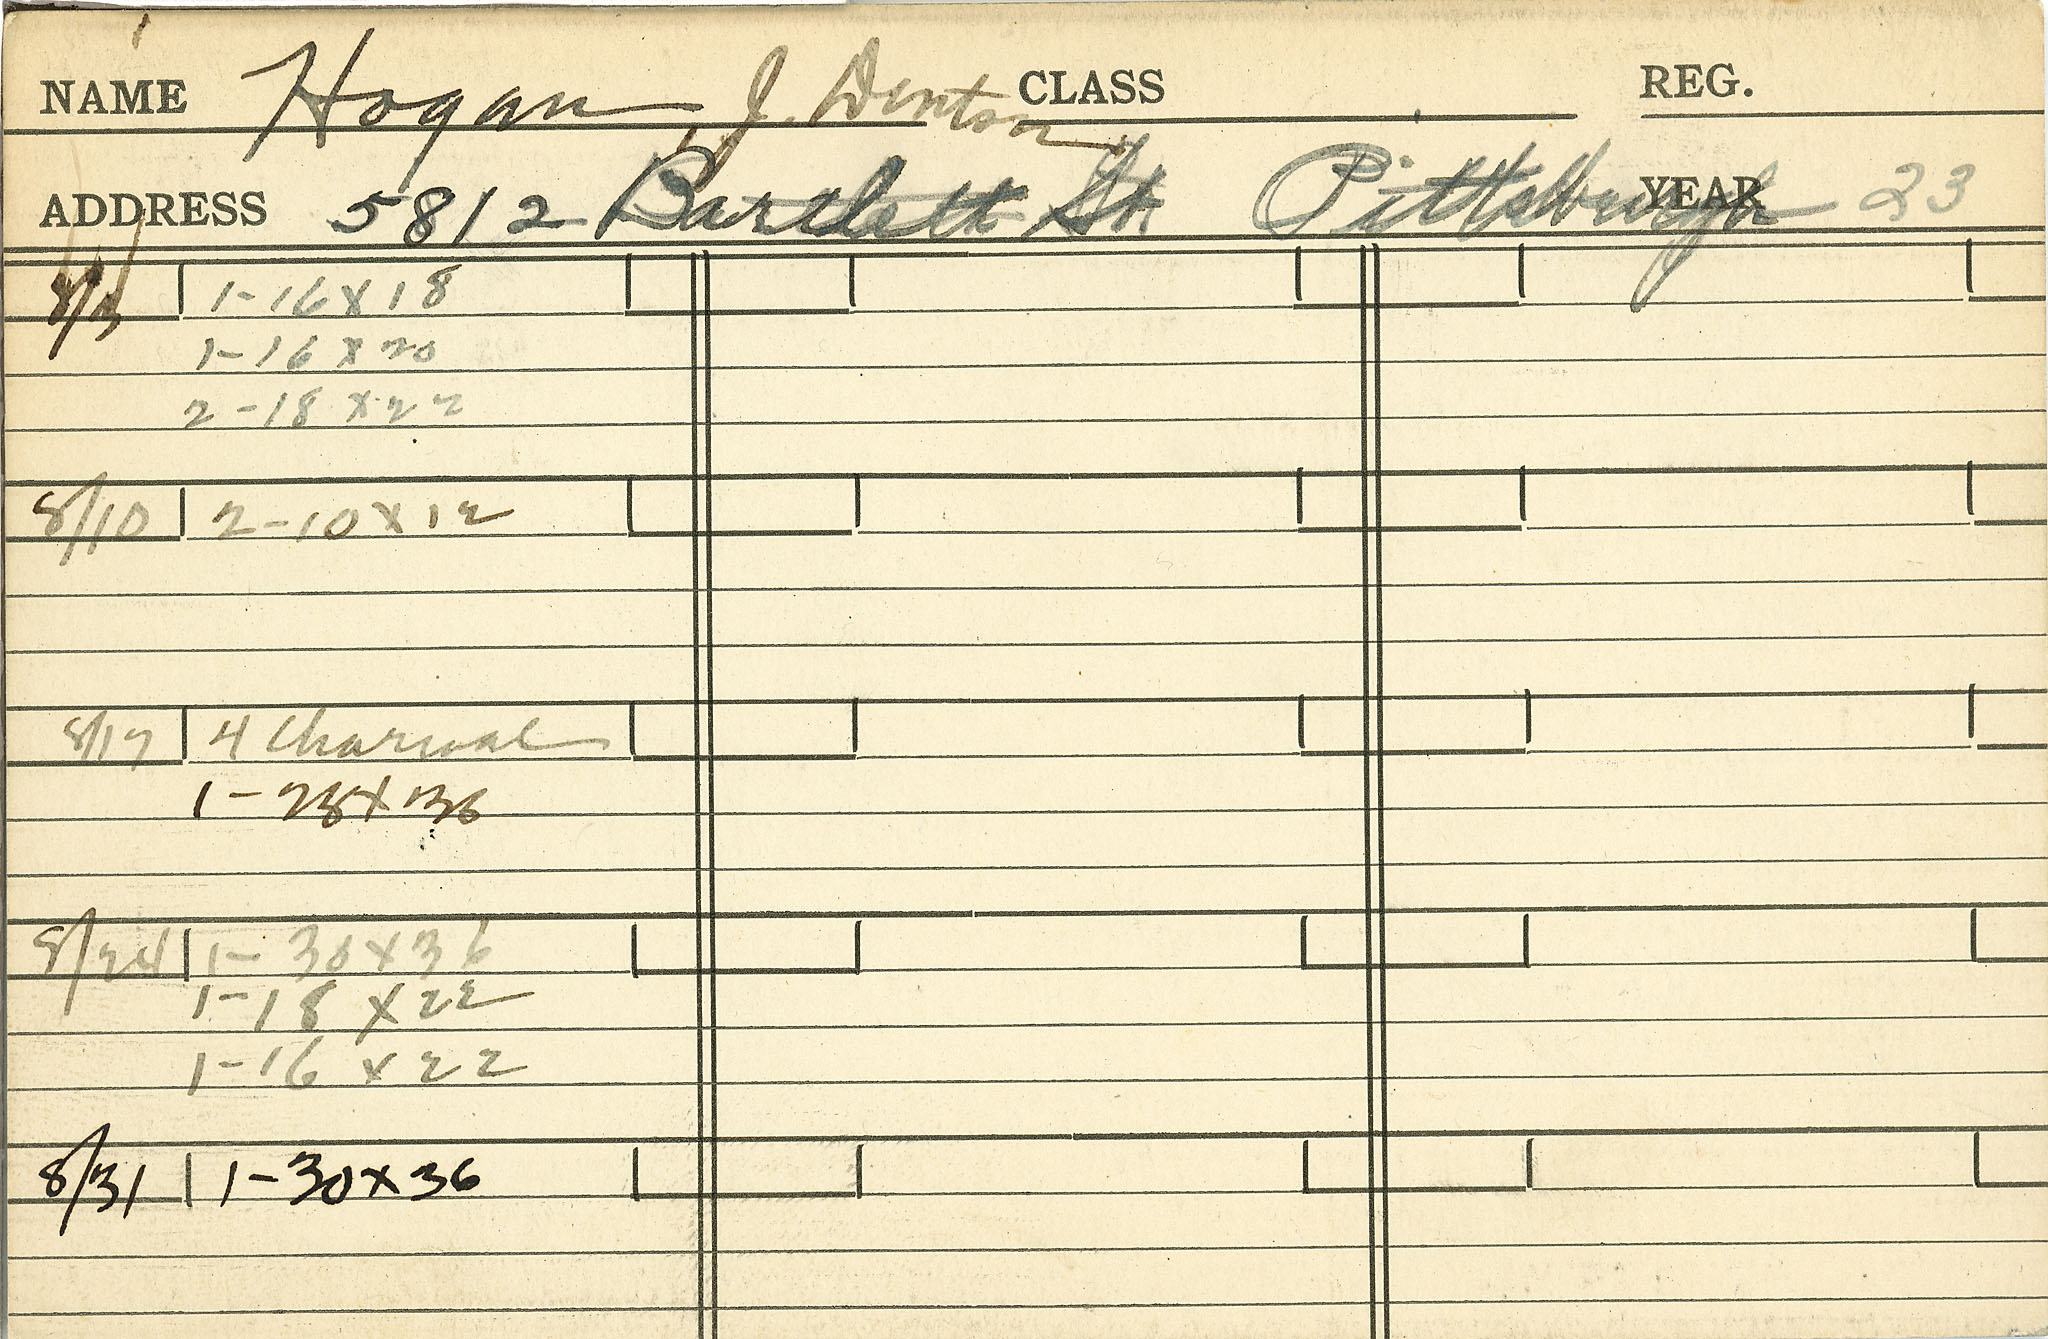 NAME Hogan, J. Denton CLASS REG.
ADDRESS 5812 Bartlett St. Pittsburgh YEAR 23
8/3 1-16x18
1-16x20
2-18x22
8/10 2-10x12
8/17 4 Charcoal
1-28x36
8/24 1-30x36
1-18x22
1-16x22
8/31 1-30x36